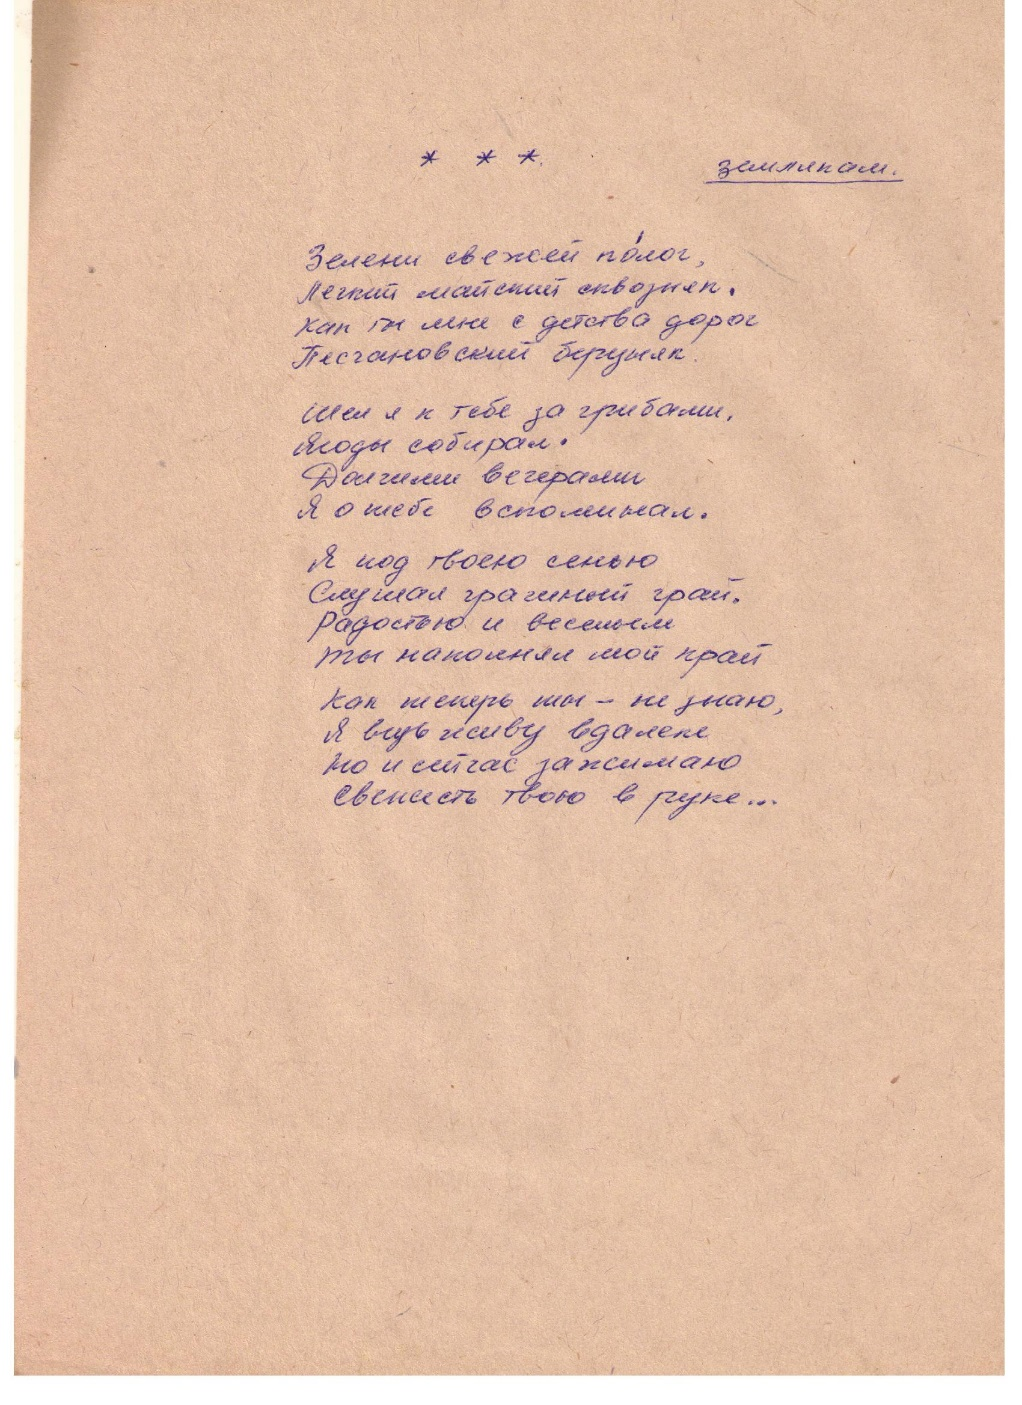 * * *
Землякам.
Зелени свежей по́лог,
Легкий майский сквозняк.
Как ты мне с детства дорог
Песчановский березняк.
Шел я к тебе за грибами,
Ягоды собирал.
Долгими вечерами
Я о тебе вспоминал.
Я под твоею сенью
Слушал грачиный грай.
Радостью и весельем
Ты наполнял мой край
Как теперь ты – не знаю,
Я ведь живу вдалеке
Но и сейчас зажимаю
Свежесть твою в руке...